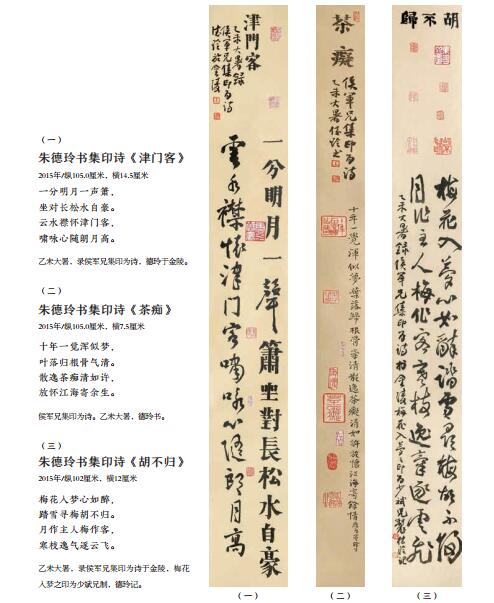 （一）
朱德玲书集印诗《津门客》
2015年/纵105.0厘米，横14.5厘米
一分明月一声箫，
坐对长松水自豪。
云水襟怀津门客，
啸咏心随朗月高。
乙未大暑，录侯军兄集印为诗，德玲于金陵。
（二）
朱德玲书集印诗《茶痴》
2015年/纵105.0厘米，横7.5厘米
十年一觉浑似梦，
叶落归根骨气清。
散逸茶痴清如许，
放怀江海寄余生。
侯军兄集印为诗。乙未大暑，德玲书。
（三）
朱德玲书集印诗《胡不归》
2015年/纵102厘米，横12厘米
梅花入梦心如醉，
踏雪寻梅胡不归。
月作主人梅作客，
寒枝逸气逐云飞。
乙未大暑，录侯军兄集印为诗于金陵，梅花
入梦之印为少斌兄制，德玲记。
津門客
乙未大暑録
侯軍兄集印為詩
德玲於金陵
一分明月一聲簫坐對長松水自豪
雲水襟懷津門客嘯咏心随朗月高
（一）
茶癡
侯軍兄集印為詩
乙未大暑德玲書
十年一覺渾似夢葉落歸根骨氣清散逸茶癡清如許放懷江海寄餘
（二）
胡不歸
梅花入夢心如醉踏雪尋梅胡不歸
月作主人梅作客寒枝逸氣逐雲飛
乙未大暑錄侯軍兄集印為詩於金陵梅花入夢之印為少斌兄製德玲記
（三）